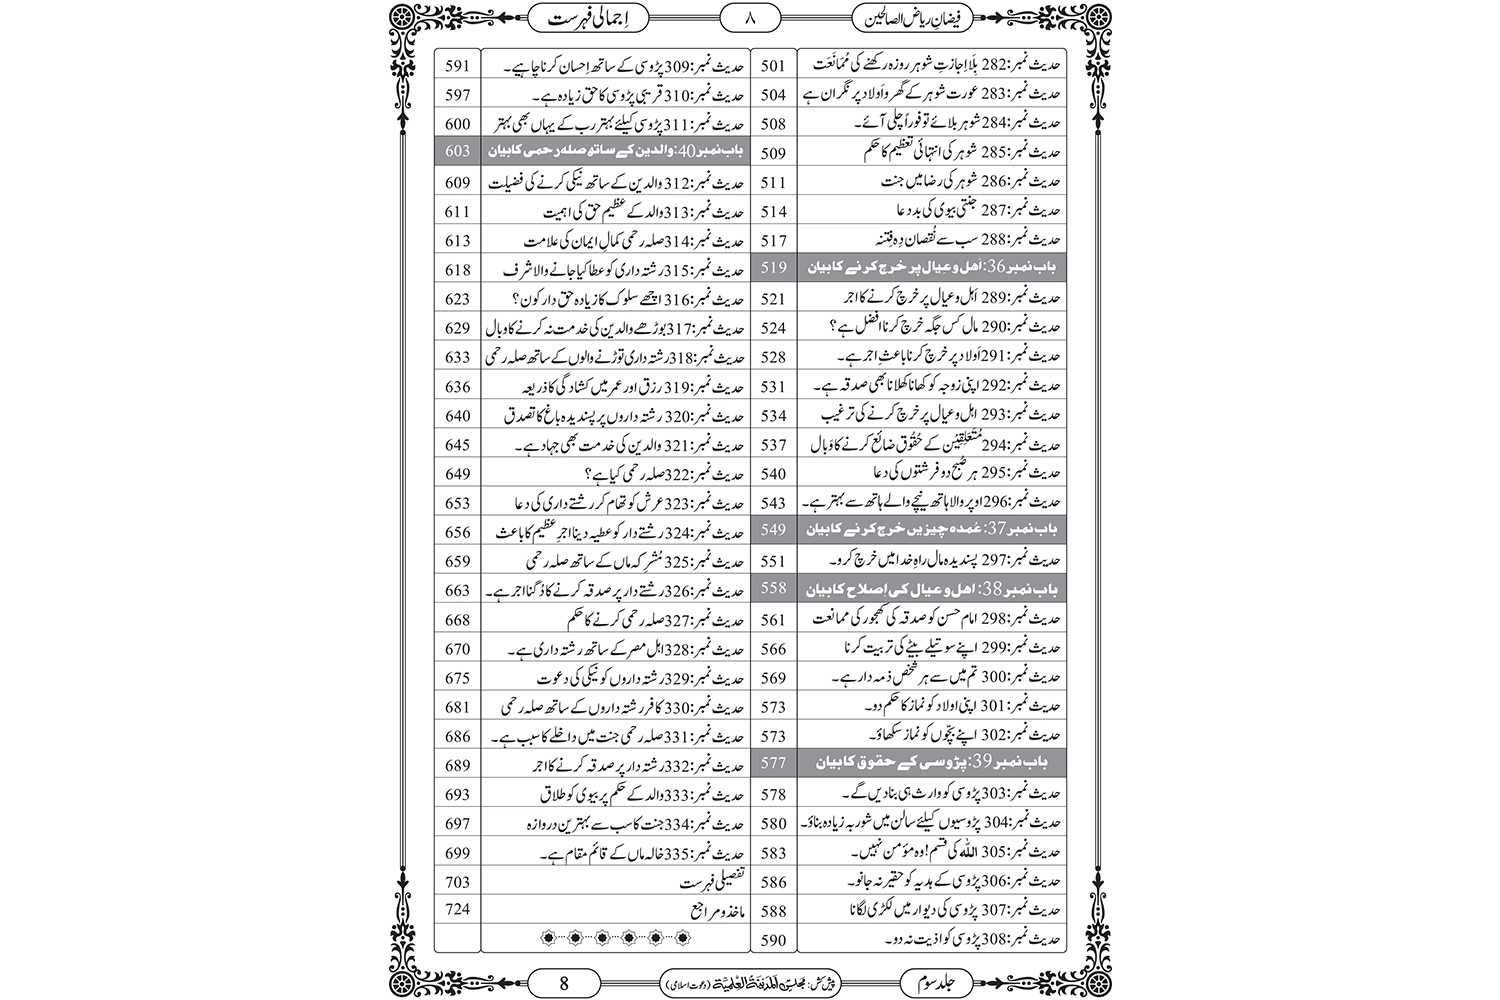 فیضانِ ریاض الصالحین
۸
اِجمالی فہرست
حدیث نمبر:282 بِلا اِجازتِ شوہر روزہ رکھنے کی مُمَانَعَت 501
حدیث نمبر:283 عورت شوہر کے گھر و اَولاد پر نگران ہے 504
حدیث نمبر:284 شوہر بلائے تو فوراً چلی آئے۔ 508
حدیث نمبر:285 شوہر کی انتہائی تعظیم کا حکم 509
حدیث نمبر:286 شوہر کی رضا میں جنت 511
حدیث نمبر:287 جنتی بیوی کی بددعا 514
حدیث نمبر:288 سب سے نُقصان دِہ فِتنہ 517
باب نمبر36: اَهل و عِیال پر خرچ کرنے کا بیان 519
حدیث نمبر:289 اَہل و عیال پر خرچ کرنے کا اجر 521
حدیث نمبر:290 مال کس جگہ خرچ کرنا افضل ہے؟ 524
حدیث نمبر:291 اَولاد پر خرچ کرنا باعثِ اجر ہے۔ 528
حدیث نمبر:292 اپنی زوجہ کو کھانا کھلانا بھی صدقہ ہے۔ 531
حدیث نمبر:293 اہل و عیال پر خرچ کرنے کی ترغیب 534
حدیث نمبر:294 مُتَعَلِّقِیْن کے حُقُوق ضائع کرنے کا وَبال 537
حدیث نمبر:295 ہر صُبح دو فرشتوں کی دعا 540
حدیث نمبر:296 اوپر والا ہاتھ نیچے والے ہاتھ سے بہتر ہے۔ 543
باب نمبر37: عُمدہ چیزیں خرچ کرنے کا بیان 549
حدیث نمبر:297 پسندیدہ مال راہِ خدا میں خرچ کرو۔ 551
باب نمبر38: اهل و عیال کی اِصلاح کا بیان 558
حدیث نمبر:298 امام حسن کو صدقہ کی کھجور کی ممانعت 561
حدیث نمبر:299 اپنے سوتیلے بیٹے کی تربیت کرنا 566
حدیث نمبر:300 تم میں سے ہر شخص ذمہ دار ہے۔ 569
حدیث نمبر:301 اپنی اولاد کو نماز کا حکم دو۔ 573
حدیث نمبر:302 اپنے بچّوں کو نماز سکھاؤ۔ 573
باب نمبر39: پڑوسی کے حقوق کا بیان 577
حدیث نمبر:303 پڑوسی کو وارث ہی بنا دیں گے۔ 578
حدیث نمبر:304 پڑوسیوں کیلئے سالن میں شوربہ زیادہ بناؤ۔ 580
حدیث نمبر:305 اللہ کی قسم! وہ مؤمن نہیں۔ 583
حدیث نمبر:306 پڑوسی کے ہدیہ کو حقیر نہ جانو۔ 586
حدیث نمبر:307 پڑوسی کی دیوار میں لکڑی لگانا 588
حدیث نمبر:308 پڑوسی کو اذیت نہ دو۔ 590
حدیث نمبر:309 پڑوسی کے ساتھ اِحسان کرنا چاہیے۔ 591
حدیث نمبر:310 قریبی پڑوسی کا حق زیادہ ہے۔ 597
حدیث نمبر:311 پڑوسی کیلئے بہتر رب کے یہاں بھی بہتر 600
باب نمبر40: والدین کے ساتھ صلہ رحمی کا بیان 603
حدیث نمبر:312 والدین کے ساتھ نیکی کرنے کی فضیلت 609
حدیث نمبر:313 والد کے عظیم حق کی اہمیت 611
حدیث نمبر:314 صلہ رحمی کمالِ ایمان کی علامت 613
حدیث نمبر:315 رشتہ داری کو عطا کیا جانے والا شرف 618
حدیث نمبر:316 اچھے سلوک کا زیادہ حق دار کون؟ 623
حدیث نمبر:317 بوڑھے والدین کی خدمت نہ کرنے کا وبال 629
حدیث نمبر:318 رشتہ داری توڑنے والوں کے ساتھ صلہ رحمی 633
حدیث نمبر:319 رزق اور عمر میں کشادگی کا ذریعہ 636
حدیث نمبر:320 رشتہ داروں پر پسندیدہ باغ کا تصدق 640
حدیث نمبر:321 والدین کی خدمت بھی جہاد ہے۔ 645
حدیث نمبر:322 صلہ رحمی کیا ہے؟ 649
حدیث نمبر:323 عرش کو تھام کر رشتے داری کی دعا 653
حدیث نمبر:324 رشتے دار کو عطیہ دینا اجرِ عظیم کا باعث 656
حدیث نمبر:325 مُشرِکہ ماں کے ساتھ صلہ رحمی 659
حدیث نمبر:326 رشتے دار پر صدقہ کرنے کا دُگنا اجر ہے۔ 663
حدیث نمبر:327 صلہ رحمی کرنے کا حکم 668
حدیث نمبر:328 اہل مصر کے ساتھ رشتہ داری ہے۔ 670
حدیث نمبر:329 رشتہ داروں کو نیکی کی دعوت 675
حدیث نمبر:330 کافر رشتہ داروں کے ساتھ صلہ رحمی 681
حدیث نمبر:331 صلہ رحمی جنت میں داخلے کا سبب ہے۔ 686
حدیث نمبر:332 رشتہ دار پر صدقہ کرنے کا اجر 689
حدیث نمبر:333 والد کے حکم پر بیوی کو طلاق 693
حدیث نمبر:334 جنت کا سب سے بہترین دروازہ 697
حدیث نمبر:335 خالہ ماں کے قائم مقام ہے۔ 699
تفصیلی فہرست 703
ماخذ و مراجع 724
جلد سوم
پیش کش: مجلس المدینۃ العلمیۃ (دعوت اسلامی)
8